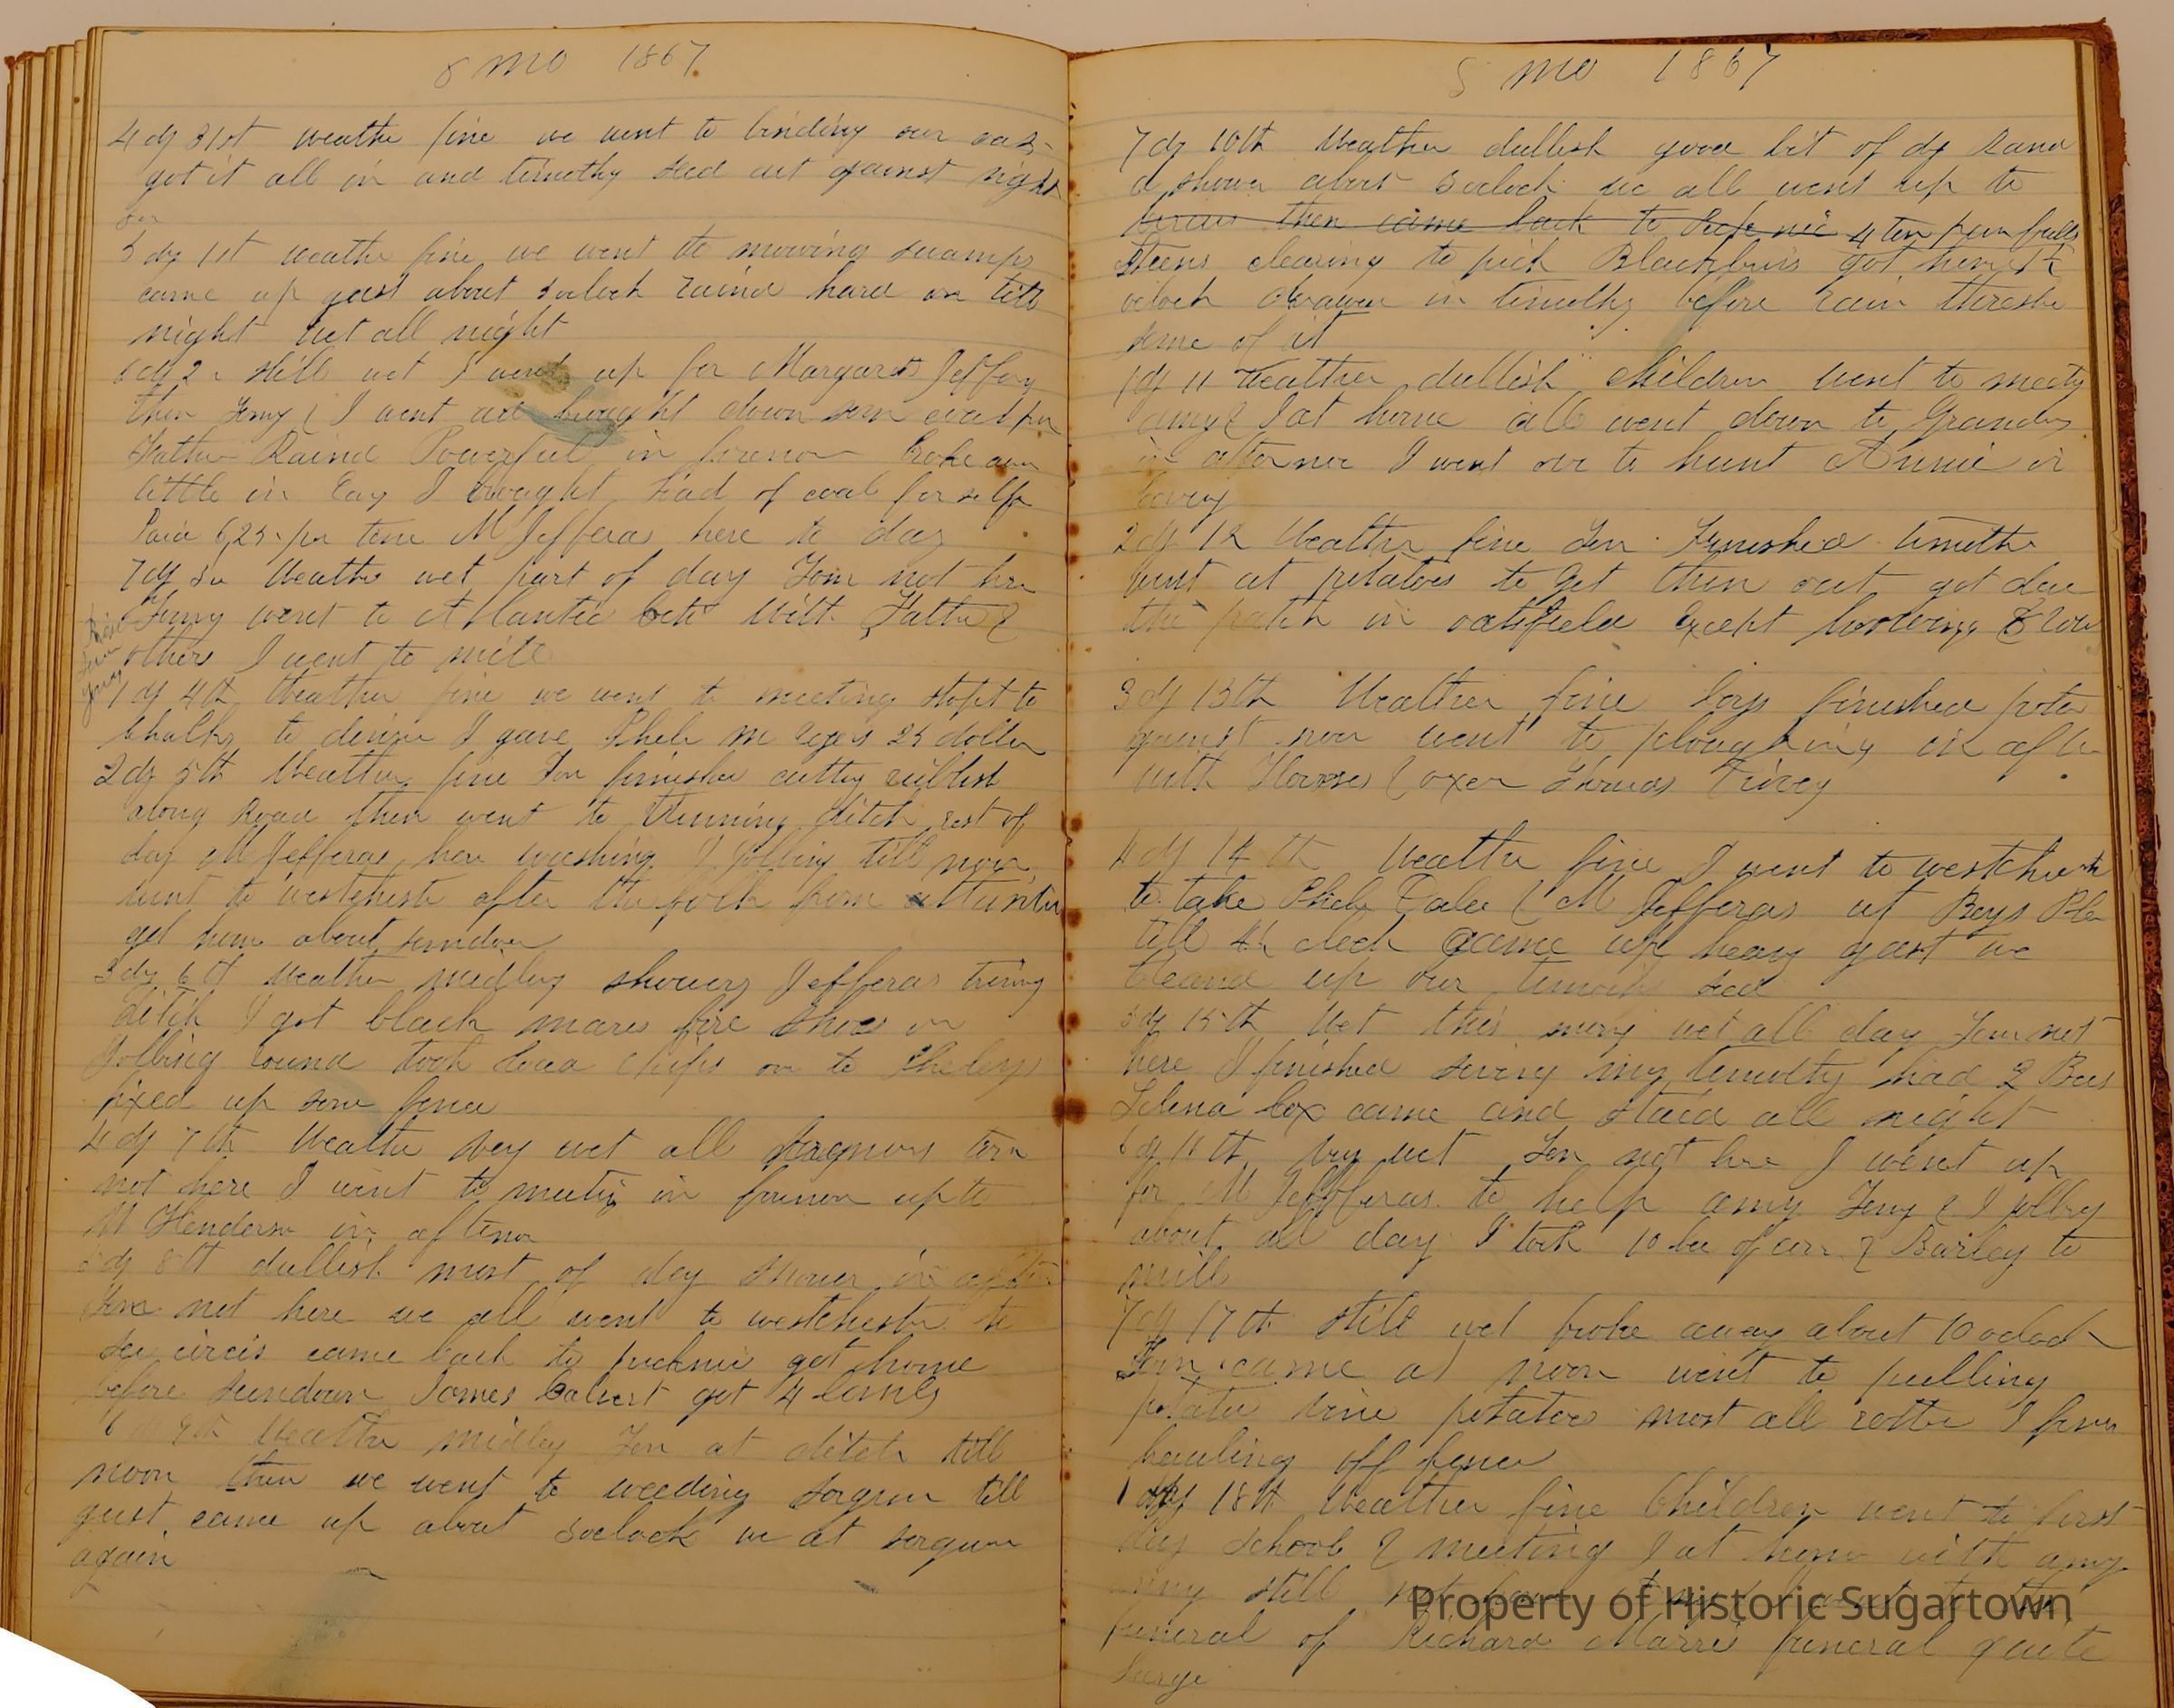 8 mo 1867
4 dy 31st weathe fine we went to binding our oats
got it all in and timothy seed cut against night
5 dy 1st weathe fine we went to mowing swamps
came up gust about 3 oclock raind hard on till
night wet all night
6 dy 2 still wet I went up for Margaret Jeffery
then Jenny & I went brought down som coal for
Father Raind Powerful in forenon Broke away
little in Eay I brought load of coal for self
Paid 6,25 per tone M Jefferas here to day
7 dy 3 Weathe wet part of day Tom not here
Jenny went to Atlantic with Father &
others I went to mill
1 dy 4th Weather fine we went to meeting stopt to
Chalks to dinner I gave 25 dollar
2 dy 5th Weather fine Tom finished cutting rubbish
along Road then went to trimming ditch rest of
day M Jefferas here washing I jobbing till noon
went to westchester after the folk from attlantic
got home about sundown
3 dy 6th Weather medley showers Jefferas triming
ditch I got black mares fore shoes on
Jobbing round took load chips on to
fixed up some fence
4 dy 7th Weathe very wet all forenoon tom
not here I went to meeting in forenon up to
M Henderson in aftenon
5 dy 8th dullish most of day shower in after
Tom not here we all went to westchester to
see circis came back to picknic got home
before sundown James Calvert got 4 lambs
6 9th Weathe midley Tom at ditch till
noon then we went to weeding sorgum till
gust came up about 3 oclock we at sorgum
again
8 mo 1867
7 dy 10th Weather dullish good bit of dy Rand
a shower about 3 oclock we all went up to
circus then came back to 4 ten
Steens clearing to pick Blackburis got home
oclock drawen in timothy before rain threshe
some of it
1 dy 11 Weather dullish children went to meety
amy & I at home all went down to Grandos
in afternoe I went ove to hunt Annie in
2 dy 12 Weather fine Tom Finished timothe
went at potatoes to get them out got don
the patch in oatsfield except
3 dy 13th Weather fine boys finished
against noon went to ploughing in afte
with Horses & oxen
4 dy 14th Weathe fine I went to westchester
to take M Jefferas at Boys
till 4½ clock came up heavy gust we
cleand up our timoth seed
5 dy 15th Wet this morng wet all day Tom not
here I finished my timothy had 2 Bus
Selena Cox came and staid all night
6 dy 16th very wet Tom not here I went up
for M Jefferas to help amy Jeny & I jobbing
about all day I took 10 bu of & Barley to
mill
7 dy 17th still wet broke away about 10 oclock
Tom came at noon went to pulling
potatoe vine potatoes most all rotte I
hauling off fence
1 dy 18th Weather fine Children went to first
day school & meeting I at home with amy
still not
funeral of Richard funeral quite
large
Property of Historic Sugartown